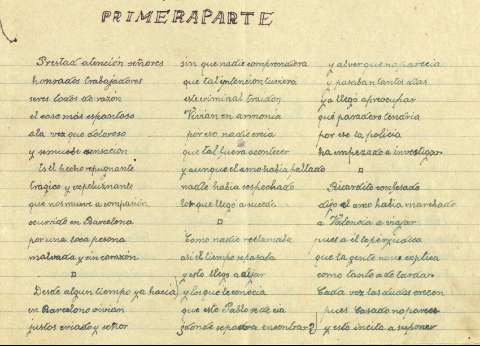 PRIMERA PARTE
Prestad atención señores
honrados trabajadores
seres todos de razón
el caso más espantoso
a la vez que doloroso
y remueve sensacion
Es el hecho repugnante
tragico y
que nos mueve a compasión
ocurrido en Barcelona
por una loca persona
malvada y sin corazón
Desde algun tiempo ya hacia
en Barcelona vivian
justos criado y señor
sin que nadie comprendiera
que tal intencion tuviera
este criminal traidor
Vivian en armonia
por eso nadie creia
que tal fuera acontecer
y aunque el amo habia faltado
nadie habia sospechado
lo que llegó a suceder
Como nadie reclamaba
asi el tiempo se pasaba
y esto llego a
y los que le conocia
que este Pablo se decia
¿donde se podra encontrar?
y al ver que no parecia
y pasaban tantos dias
ya llegó a preocupar
que paradero tendria
por eso la policia
ha empezado a investigar
Ricardito confesado
dijo el amo habia marchado
a Valencia a viajar
pues a el
que la gente no se explica
como tanto a de tardar
Cada vez las dudas crecen
pues Casado no parece
y esto incita a suponer